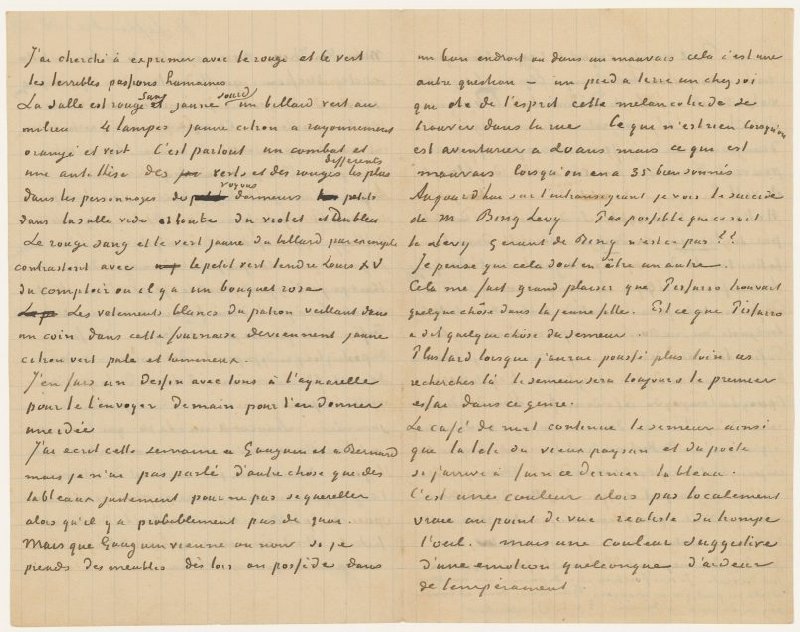 J'ai cherché à exprimer avec le rouge et le vert
les terribles passions humaines
La salle est rouge sang et jaune sourd un billard vert au
milieu 4 lampes jaune citron a rayonnement
orangé et vert C'est partout un combat et
une antithèse des verts et des rouges différents les plus
dans les personnages de voyous dormeurs petits
dans la salle vide et haute du violet et du bleu
Le rouge sang et le vert jaune du billard par exemple
contrastent avec le petit vert tendre Louis XV
du comptoir ou il y a un bouquet rose
Les vetements blancs du patron veillant dans
un coin dans cette fournaise deviennent jaune
citron vert pale et lumineux.
J'en fais un dessin avec tons à l'aquarelle
pour te l'envoyer demain pour t'en donner
une idée
J'ai écrit cette semaine a Gauguin et a Bernard
mais je n'ai pas parlé d'autre chose que des
tableaux justement pour ne pas se quereller
alors qu'il y a probablement pas de quoi.
Mais que Gauguin vienne ou non si je
prends des meubles dès lors on possède dans
un bon endroit ou dans un mauvais cela c'est une
autre question – un pied a terre un chez soi
qui ote de l'esprit cette melancolie de se
trouver dans la rue Ce qui n'est rien lorsqu'on
est aventurier a 20 ans mais ce qui est
mauvais lorsqu'on en a 35 bien sonnés
Aujourd'hui sur l'intransigeant je vois le suicide
de M Bing Levy Pas possible que ce soit
le Levy gérant de Bing n'est ce pas ??
Je pense que cela doit en être un autre.
Cela me fait grand plaisir que Pissarro trouvait
quelque chôse dans la jeune fille. Est ce que Pissarro
a dit quelque chôse du semeur.
Plus tard lorsque j'aurai poussé plus loin ces
recherches là le semeur sera toujours le premier
essai dans ce genre.
Le café de nuit continue le semeur ainsi
que la tete du vieux paysan et du poete
si j'arrive à faire ce dernier tableau.
C'est une couleur alors pas localement
vraie au point de vue realiste du trompe
l'oeil. mais une couleur suggestive
d'une emotion quelconque d'ardeur
de tempérament.